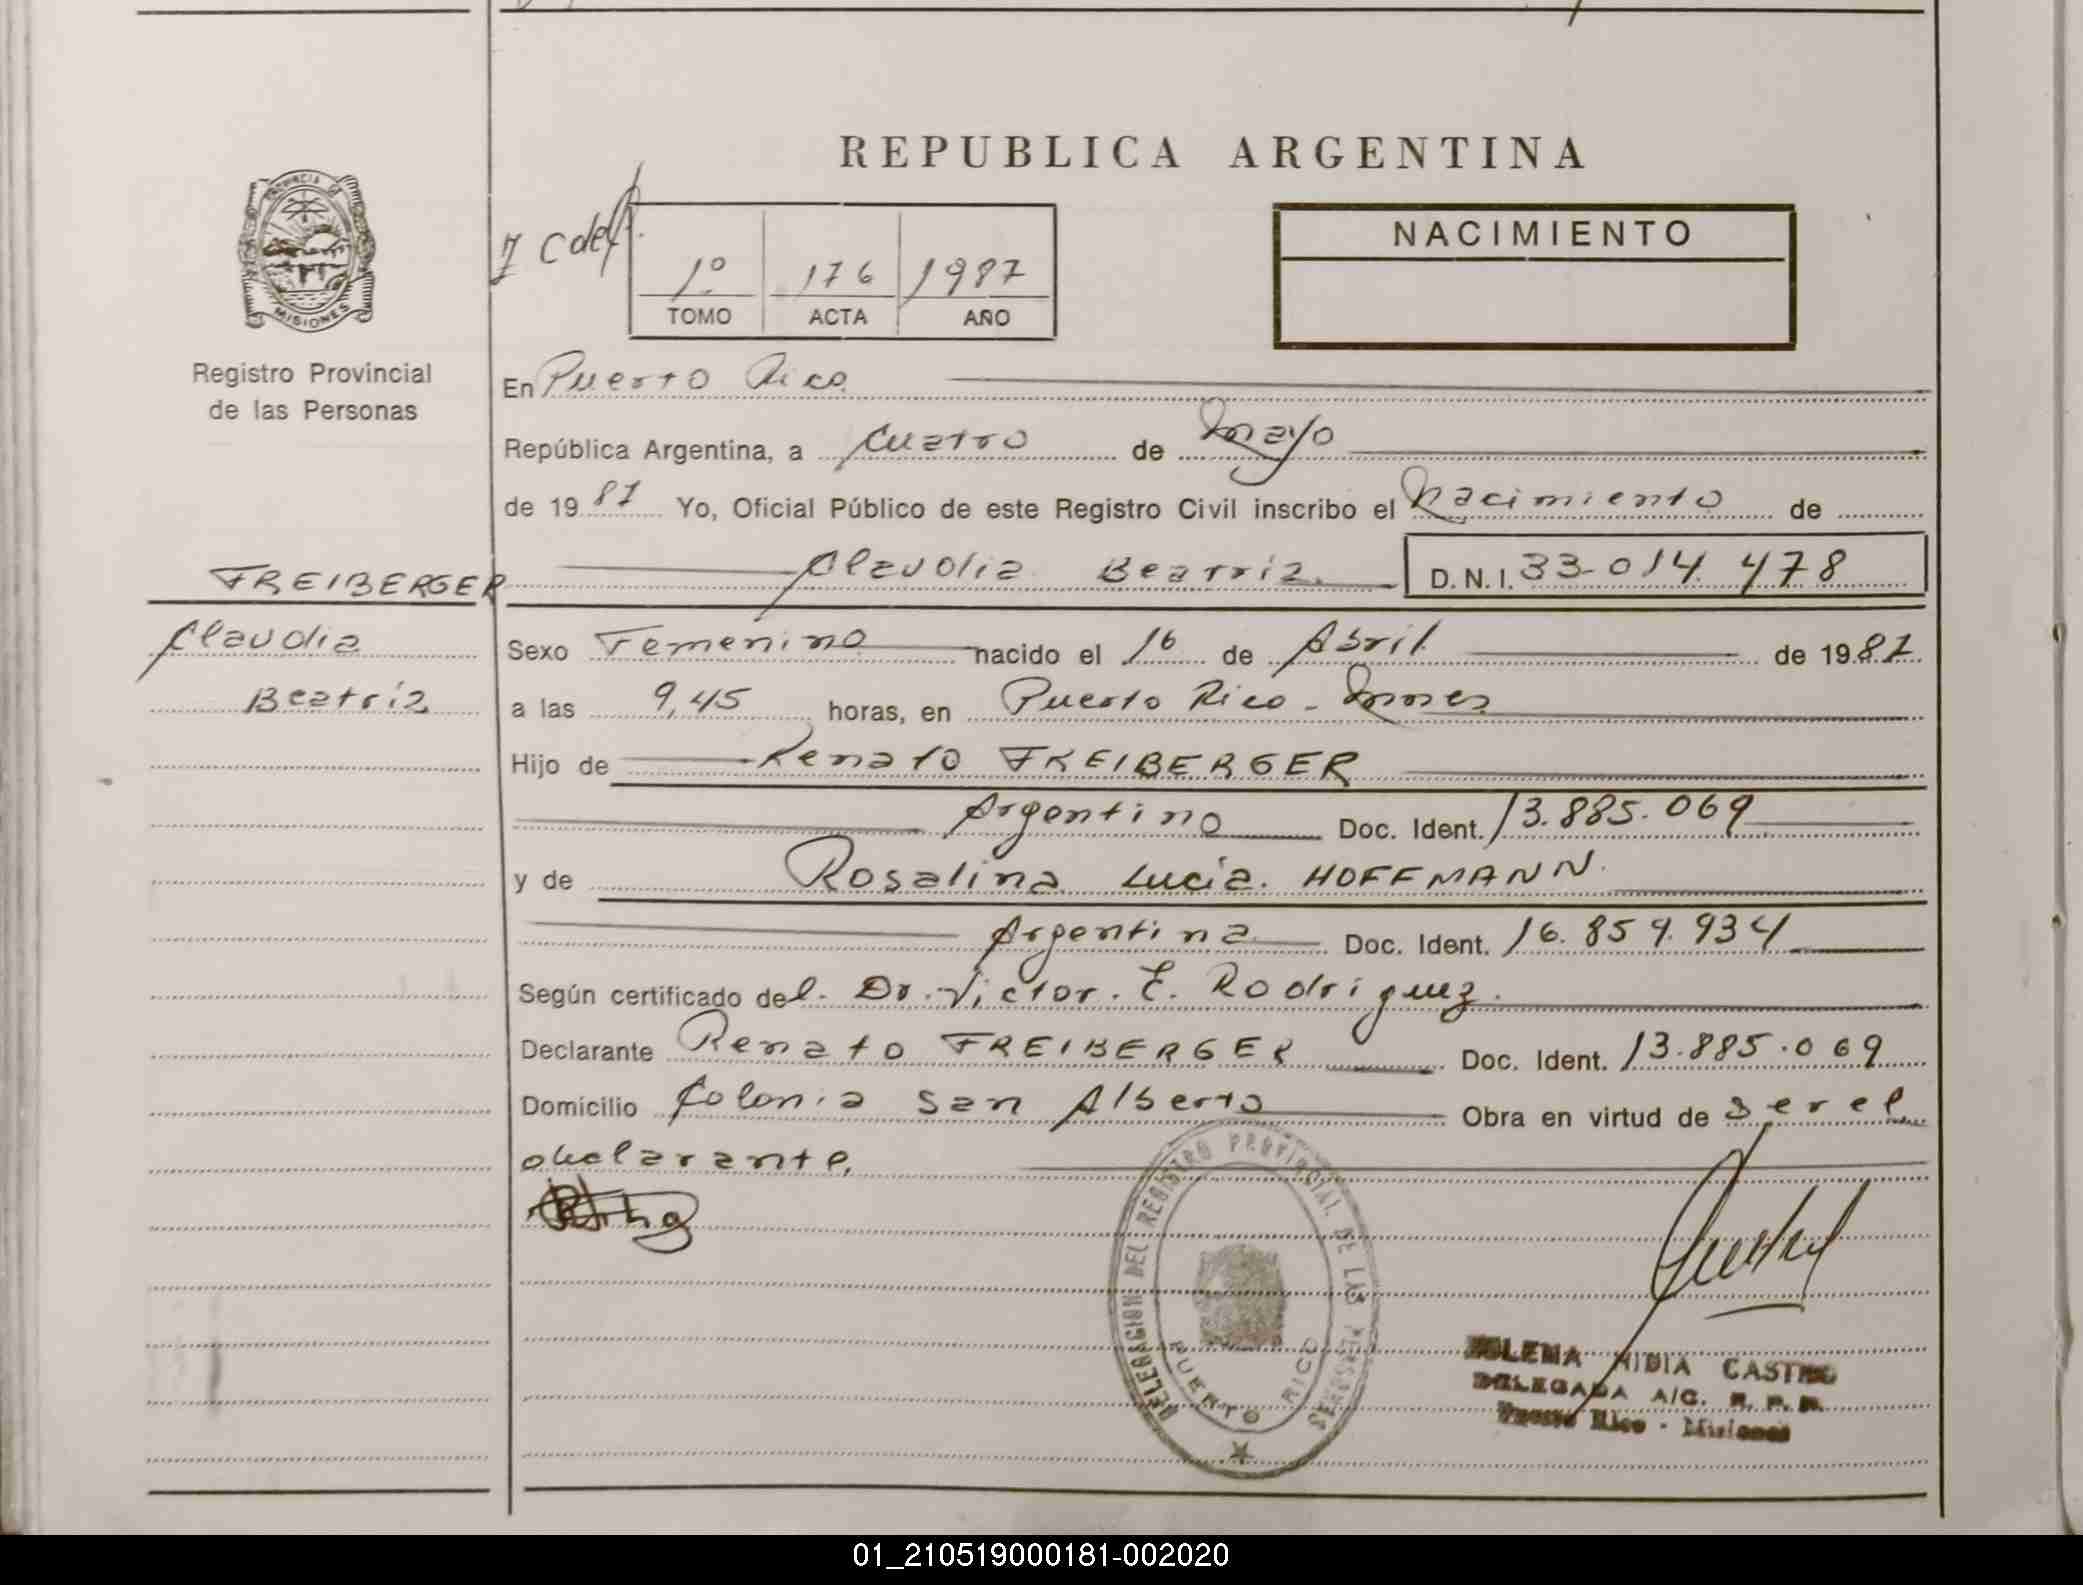 REPUBLICA ARGENTINA
PROVINCIA DE MISIONES
Registro Provincial
de las Personas
1º 176 1987
TOMO ACTA AÑO
NACIMIENTO
En Puerto Rico
República Argentina, a cuatro de Mayo
de 1987 Yo, Oficial Público de este Registro Civil inscribo el Nacimiento de
FREIBERGER Claudia Beatriz. D.N.I. 33.014.478
Claudia
Beatriz
Sexo Femenino nacido el 16 de Abril de 1987
a las 9,45 horas, en Puerto Rico - Mnes
Hijo de Renato FREIBERGER
Argentino Doc. Ident. 13.885.069
y de Rosalina Lucia HOFFMANN
Argentina Doc. Ident. 16.859.934
Según certificado del. Dr. Victor. E. Rodriguez.
Declarante Renato FREIBERGER Doc. Ident. 13.885.069
Domicilio Colonia San Alberto Obra en virtud de ser el
declarante.
DELEGACION DEL REGISTRO PROVINCIAL DE LAS PERSONAS
PUERTO RICO
NIDIA CASTRO
DELEGADA A/C. R. P. P.
Puerto Rico - Misiones
01_210519000181-002020